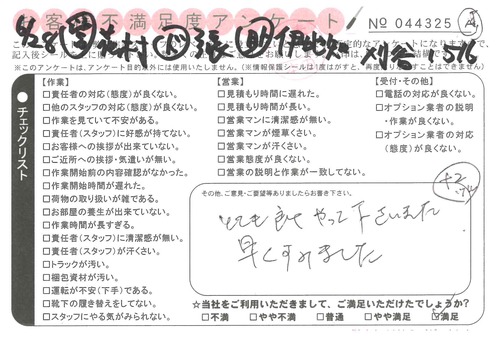 お客様不満足度アンケート
No 044325
※このアンケートは、アンケート目的以外には使用いたしません。(※情報保護シールは1度はがすと、再度貼ることはできません)
チェックリスト
【作業】
□責任者の対応(態度)が良くない。
□他のスタッフの対応(態度)が良くない。
□作業を見ていて不安がある。
□責任者(スタッフ)に好感が持てない。
□お客様への挨拶が出来ていない。
□ご近所への挨拶・気遣いが無い。
□作業開始前の内容確認がなかった。
□作業開始時間が遅れた。
□荷物の取り扱いが雑である。
□お部屋の養生が出来ていない。
□作業時間が長すぎる。
□責任者(スタッフ)に清潔感が無い。
□責任者(スタッフ)が汗くさい。
□トラックが汚い。
□梱包資材が汚い。
□運転が不安(下手)である。
□靴下の履き替えをしてない。
□スタッフにやる気がみられない。
【営業】
□見積もり時間に遅れた。
□見積もり時間が長い。
□営業マンに清潔感が無い。
□営業マンが煙草くさい。
□営業マンが汗くさい。
□営業態度が良くない。
□営業の説明と作業が一致してない。
【受付・その他】
□電話の対応が良くない。
□オプション業者の説明
・作業が良くない。
□オプション業者の対応
(態度)が良くない。
その他、ご意見・ご要望等ありましたらお書き下さい。
とても良くやって下さいました
早くすみました
☆当社をご利用いただきまして、ご満足いただけたでしょうか?
□不満 □やや不満 □普通 □やや満足 ☑満足